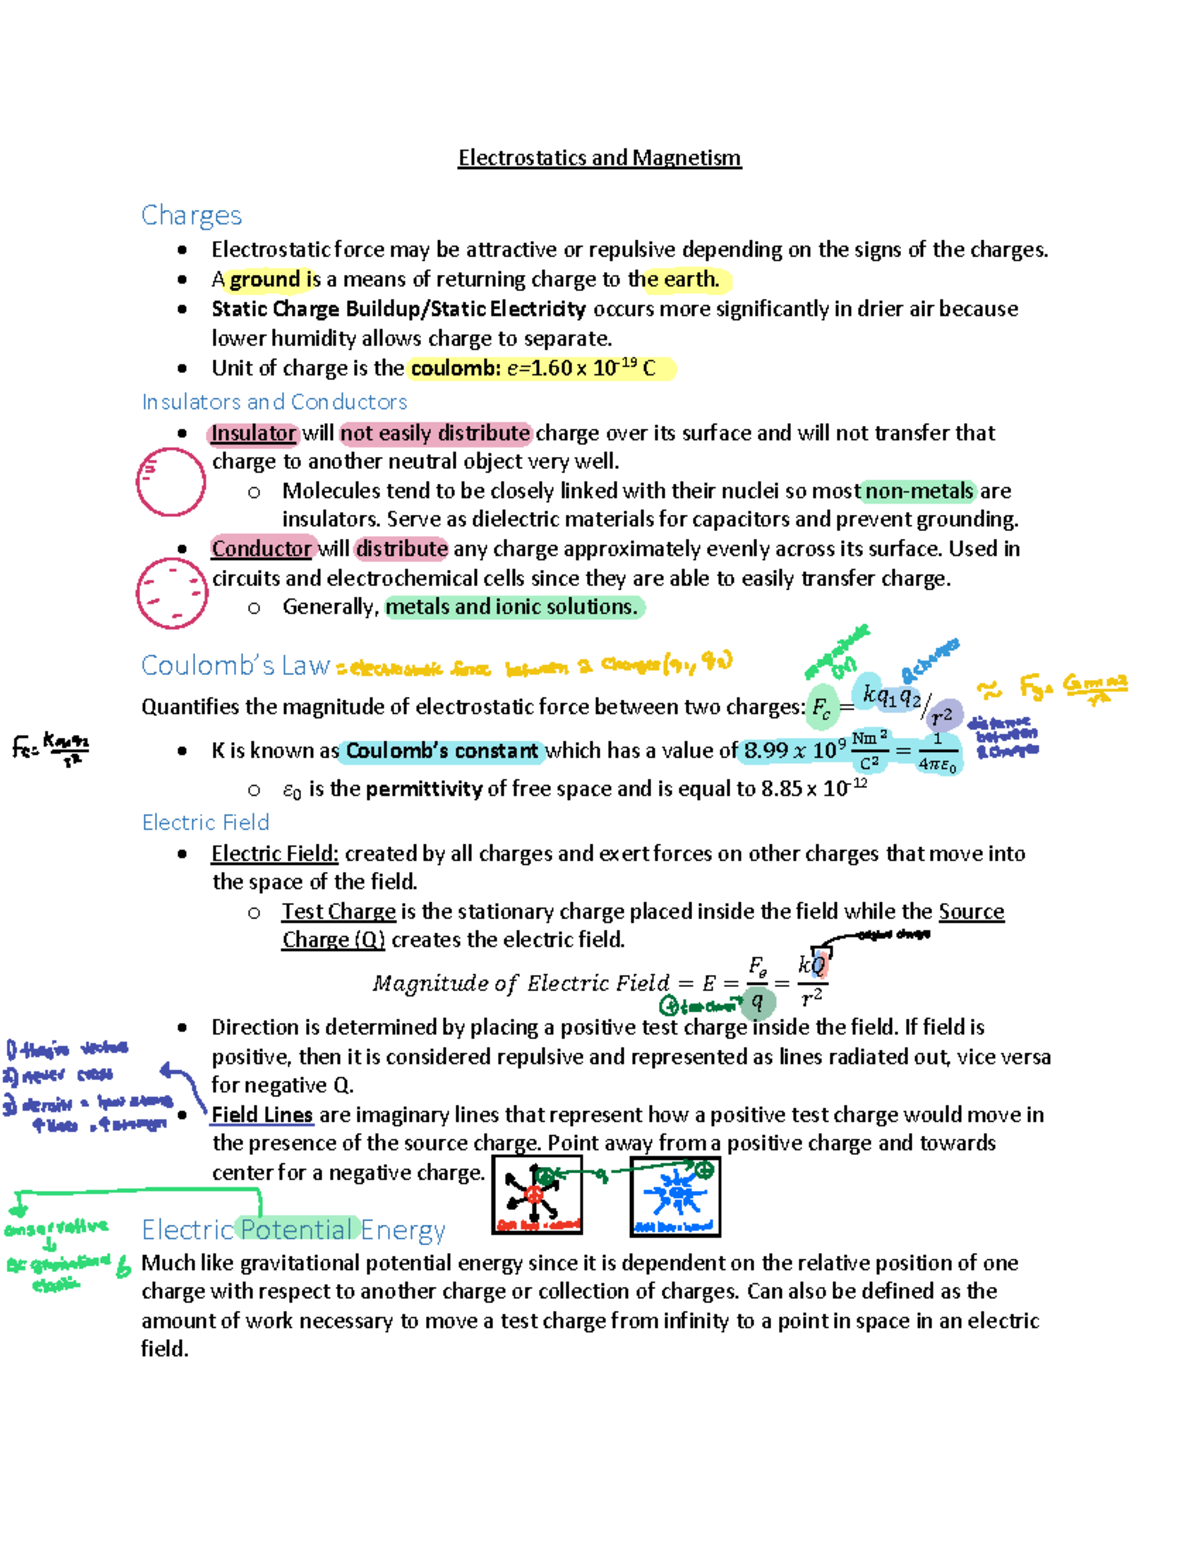 Electrostatics and Magnetism
Charges
• Electrostatic force may be attractive or repulsive depending on the signs of the charges.
• A ground is a means of returning charge to the earth.
• Static Charge Buildup/Static Electricity occurs more significantly in drier air because
lower humidity allows charge to separate.
• Unit of charge is the coulomb: e=1.60 x 10⁻¹⁹ C
Insulators and Conductors
• Insulator will not easily distribute charge over its surface and will not transfer that
charge to another neutral object very well.
o Molecules tend to be closely linked with their nuclei so most non-metals are
insulators. Serve as dielectric materials for capacitors and prevent grounding.
• Conductor will distribute any charge approximately evenly across its surface. Used in
circuits and electrochemical cells since they are able to easily transfer charge.
o Generally, metals and ionic solutions.
magnitude
Coulomb's Law = electrostatic force between 2 charges (q1, q2)
Quantifies the magnitude of electrostatic force between two charges: F_c = kq₁q₂/r²
≈ Fg = Gm1m2/r²
distance
between
2 charges
Fe = kq1q2/r²
• K is known as Coulomb's constant which has a value of 8.99 x 10⁹ Nm²/C² = 1/4πε₀
o ε₀ is the permittivity of free space and is equal to 8.85 x 10⁻¹²
Electric Field
• Electric Field: created by all charges and exert forces on other charges that move into
the space of the field.
o Test Charge is the stationary charge placed inside the field while the Source
Charge (Q) creates the electric field.
charge
Magnitude of Electric Field = E = F_e/q = kQ/r²
• Direction is determined by placing a positive test charge inside the field. If field is
positive, then it is considered repulsive and represented as lines radiated out, vice versa
for negative Q.
1) vectors
2) never cross
3)
• Field Lines are imaginary lines that represent how a positive test charge would move in
the presence of the source charge. Point away from a positive charge and towards
center for a negative charge.
q
Electric Potential Energy
conservative
gravitational
elastic
Much like gravitational potential energy since it is dependent on the relative position of one
charge with respect to another charge or collection of charges. Can also be defined as the
amount of work necessary to move a test charge from infinity to a point in space in an electric
field.